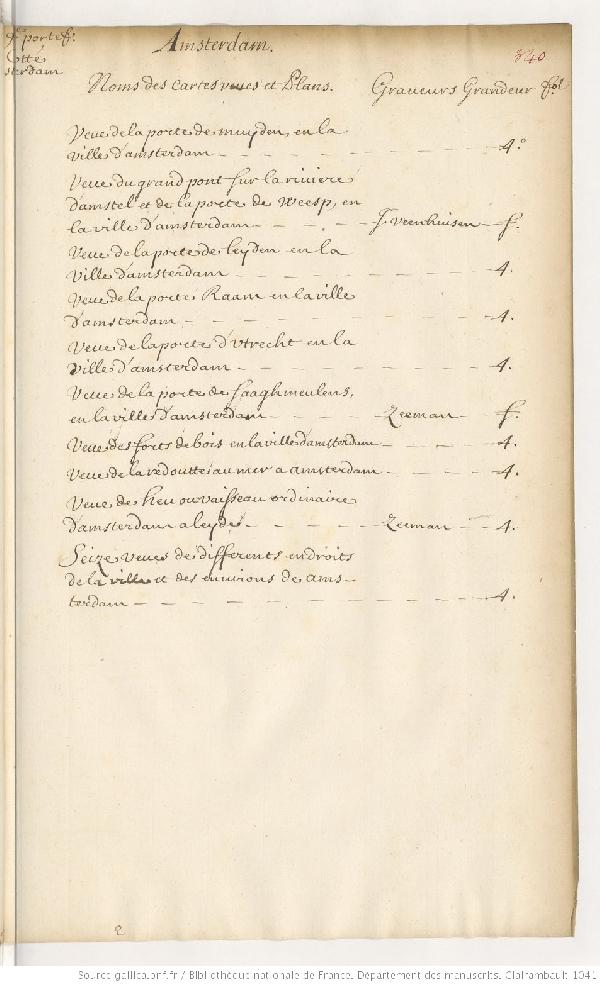 Amsterdam.
340
Noms des cartes veues et Plans. Graveurs Grandeur fol
Veue de la porte de muyden, en la
ville d'amsterdam 4.º
Veue du grand pont sur la riviere
d'amstel et de la porte de Weesp, en
la ville d'amsterdam J. veenhuisen f.
Veue de la porte de leyden en la
ville d'amsterdam 4.
Veue de la porte Raam en la ville
d'amsterdam 4.
Veue de la porte d'vtrecht en la
ville d'amsterdam 4.
Veue de la porte de saaghmeulens,
en la ville d'amsterdam Zeeman f.
Veue des forts de bois en la ville d'amsterdam 4.
Veue de la redoutte au mer a amsterdam 4.
Veue de heu ou vaisseau ordinaire
d'amsterdam a leyde Zeeman 4.
Seize veues de differents endroits
de la ville et des environs de ams-
terdam 4.
Source gallica.bnf.fr / Bibliothèque nationale de France. Département des manuscrits. Clairambault 1041